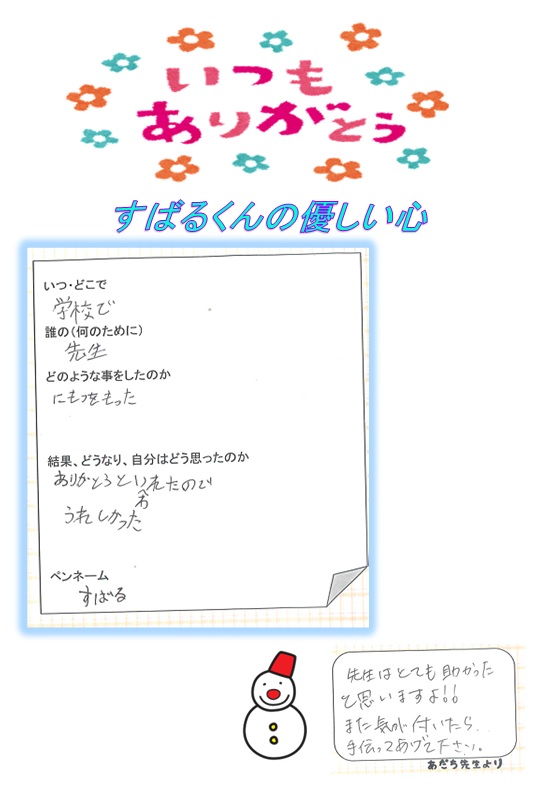 いつも
ありがとう
すばるくんの優しい心
いつ・どこで
学校で
誰の(何のために)
先生
どのような事をしたのか
にもつをもった
結果、どうなり、自分はどう思ったのか
ありがとうといわれたので
うれしかった
ペンネーム
すばる
先生はとても助かった
と思いますよ!!
また気が付いたら、
手伝ってあげて下さい。
あだち先生より